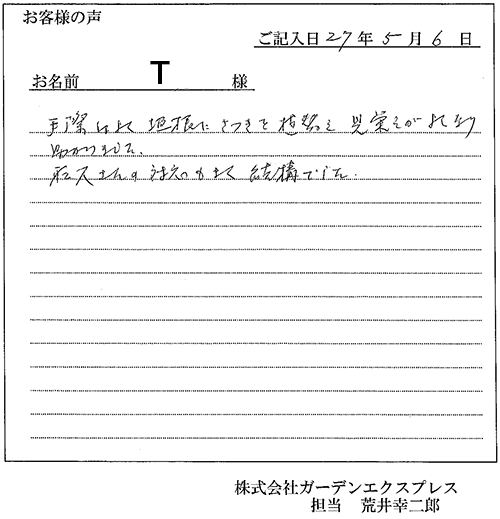 お客様の声
ご記入日 27年 5月 6日
お名前 T 様
手際よく 垣根に さつきを 植替え 見栄えがよくなり
助かりました。
結構でした。
株式会社ガーデンエクスプレス
担当 荒井幸二郎